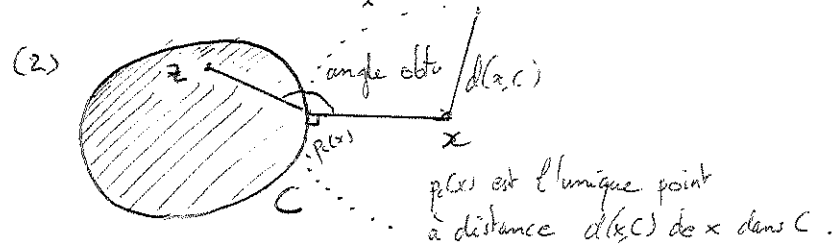 (2)
z
angle obtu
d(x,C)
x
p_c(x)
C
p_c(x) est l'unique point
à distance d(x,C) de x dans C.